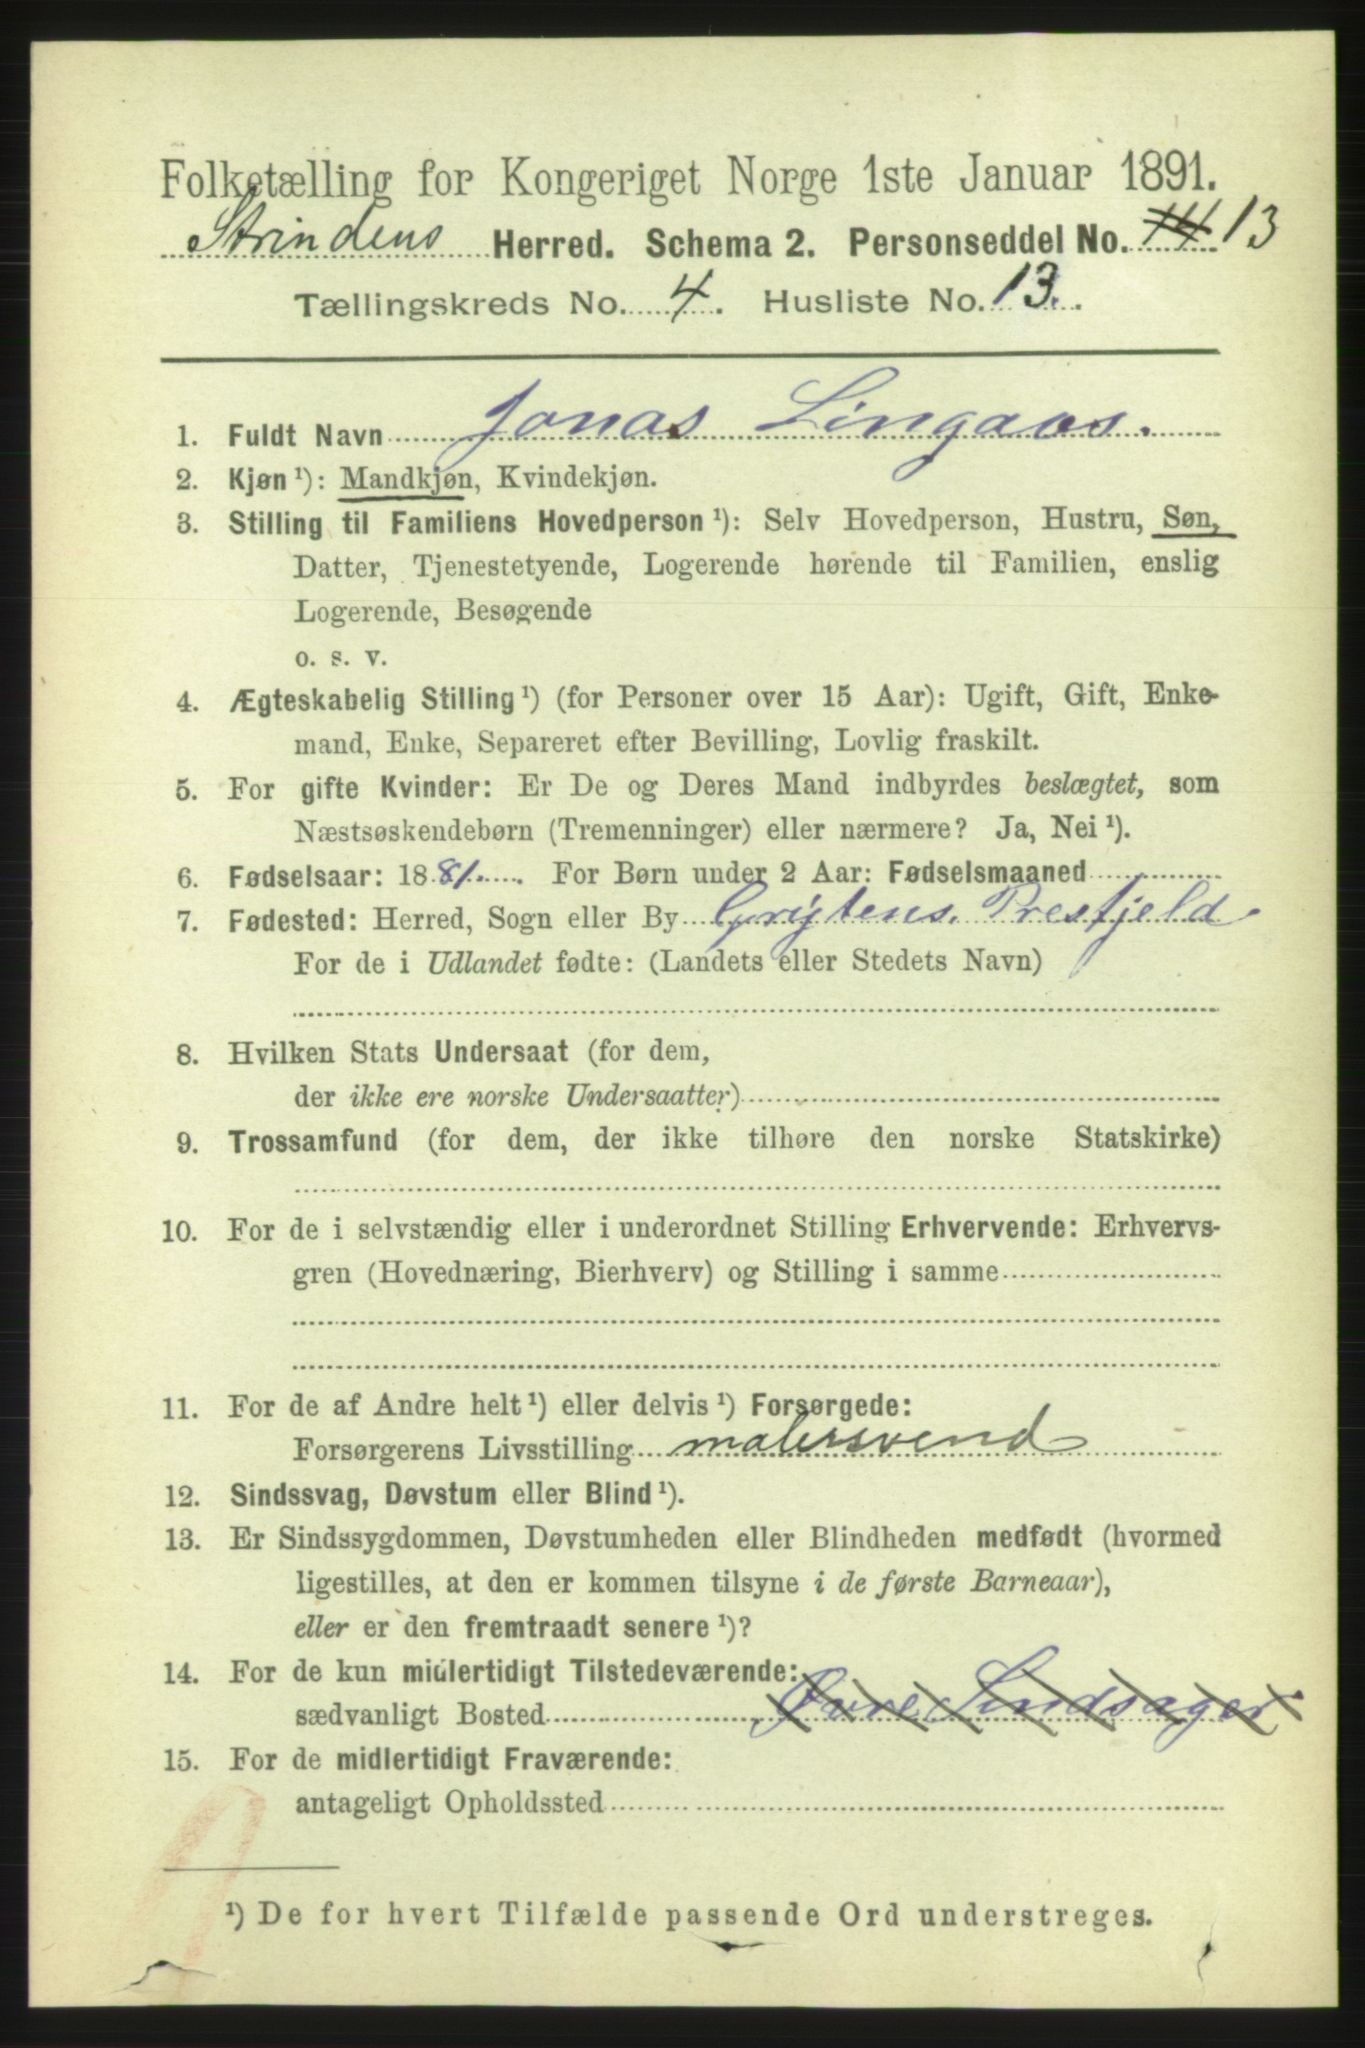 Folketælling for Kongeriget Norge 1ste Januar 1891.
Strindens Herred. Schema 2. Personseddel No. 14 13
Tællingskreds No. 4. Husliste No. 13.
1. Fuldt Navn Jonas Lingaas.
2. Kjøn ¹): Mandkjøn, Kvindekjøn.
3. Stilling til Familiens Hovedperson ¹): Selv Hovedperson, Hustru, Søn,
Datter, Tjenestetyende, Logerende hørende til Familien, enslig
Logerende, Besøgende
o. s. v.
4. Ægteskabelig Stilling ¹) (for Personer over 15 Aar): Ugift, Gift, Enke-
mand, Enke, Separeret efter Bevilling, Lovlig fraskilt.
5. For gifte Kvinder: Er De og Deres Mand indbyrdes beslægtet, som
Næstsøskendebørn (Tremenninger) eller nærmere? Ja, Nei ¹).
6. Fødselsaar: 1881. For Børn under 2 Aar: Fødselsmaaned
7. Fødested: Herred, Sogn eller By Grytens. Prestjeld
For de i Udlandet fødte: (Landets eller Stedets Navn)
8. Hvilken Stats Undersaat (for dem,
der ikke ere norske Undersaatter)
9. Trossamfund (for dem, der ikke tilhøre den norske Statskirke)
10. For de i selvstændig eller i underordnet Stilling Erhvervende: Erhvervs-
gren (Hovednæring, Bierhverv) og Stilling i samme
11. For de af Andre helt ¹) eller delvis ¹) Forsørgede:
Forsørgerens Livsstilling malersvend
12. Sindssvag, Døvstum eller Blind ¹).
13. Er Sindssygdommen, Døvstumheden eller Blindheden medfødt (hvormed
ligestilles, at den er kommen tilsyne i de første Barneaar),
eller er den fremtraadt senere ¹)?
14. For de kun midlertidigt Tilstedeværende:
sædvanligt Bosted Øvre Lindsager
15. For de midlertidigt Fraværende:
antageligt Opholdssted
¹) De for hvert Tilfælde passende Ord understreges.